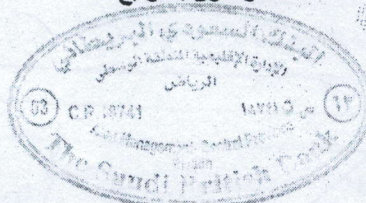 البنك السعودي البريطاني
الإدارة الإقليمية للمنطقة الوسطى
الرياض
03
C.R 18741
س ت ١٨٧٤١
١٣
Area Management Central Province
Riyadh
The Saudi British Bank